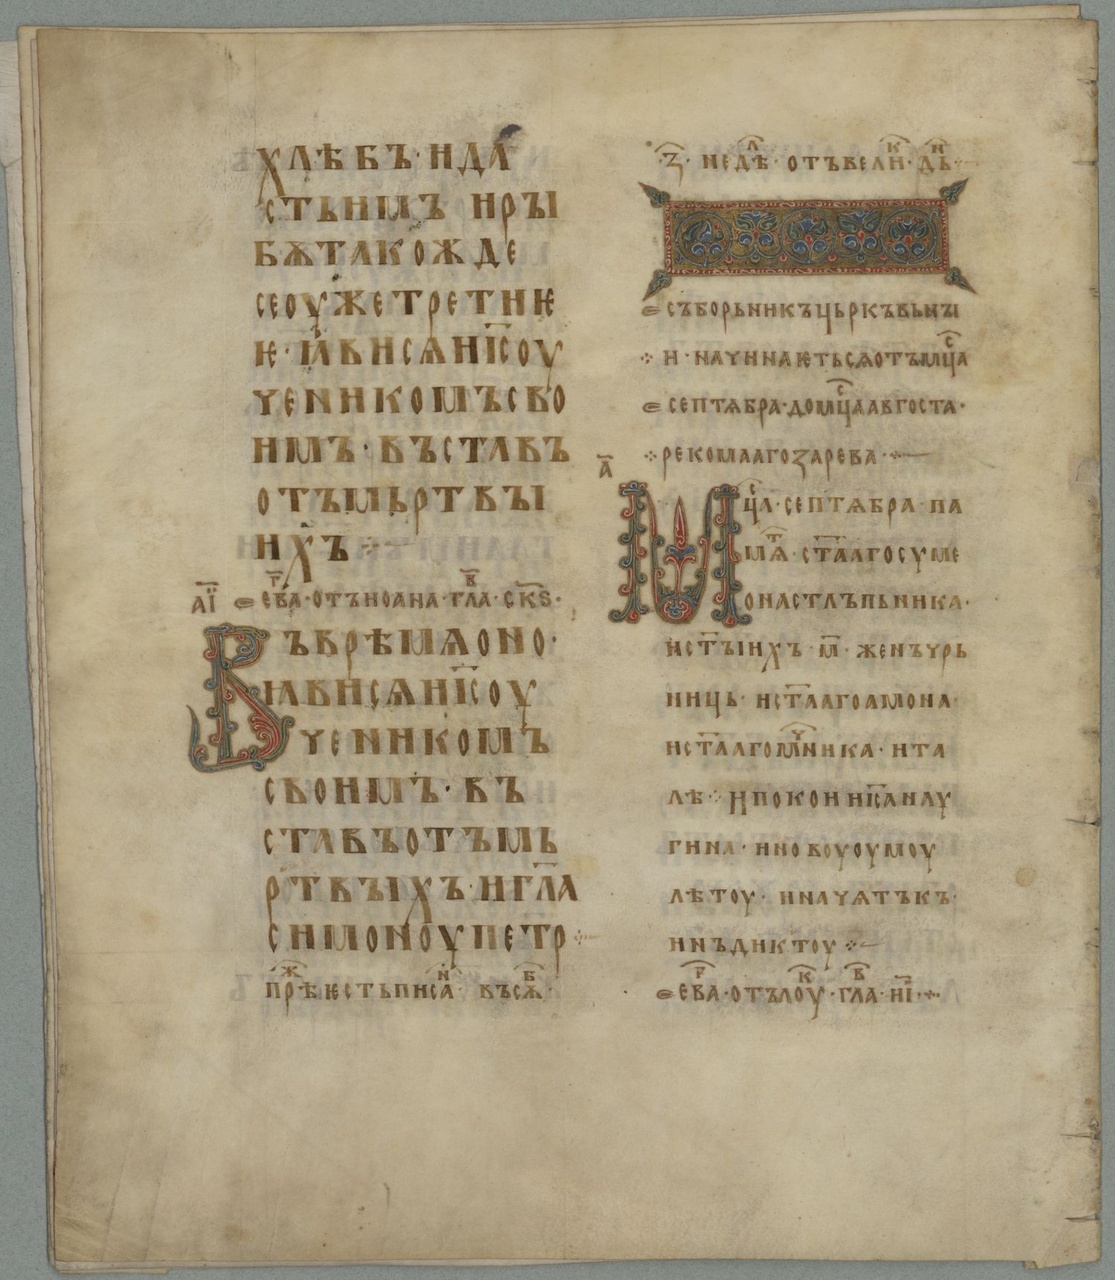 хлѣбъ· и да
сть имъ и ры
бѫ такожде
се оуже трети ѥ
ѥ· ꙗви сѧ и҃с оу
ченикомъ сво
имъ· въставъ
отъ мьртвы
ихъ
а҃і еваⷢ҇· отъ иоана· глаⷡ҇· ск҃ѕ·
Въ врѣмѧ оно·
ꙗви сѧ и҃с оу
ченикомъ
своимъ· въ
ставъ отъ мь
ртвыихъ· и гл҃а
симоноу петр
прѣⷤ ѥсть писаⷩ҇· въ сѫⷠ҇·
·ꙁ· недѣⷧ҇· отъ велиⷦ҇· дьⷩ҇·
съборьникъ цьркъвьны
и· начинаѥть сѧ отъ мцⷭ҇а
септѧбра· до мцⷭ҇а авгоста·
рекомааго зарева·
а҃
Мцⷭ҇а· септѧбра· па
мѧⷮ· ст҃ааго сѵме
она стлъпьника·
и ст҃ыихъ· м҃· женъ ѵрь
ниць· и ст҃ааго амона·
и ст҃ааго мѫⷱ҇ника· ита
лѣ· и покои ни҃са наѵ
гина· и новоуоумоу
лѣтоу· и начѧтъкъ·
инъдиктоу
еваⷢ҇· отъ лоуⷦ҇· глаⷡ҇· и҃і·